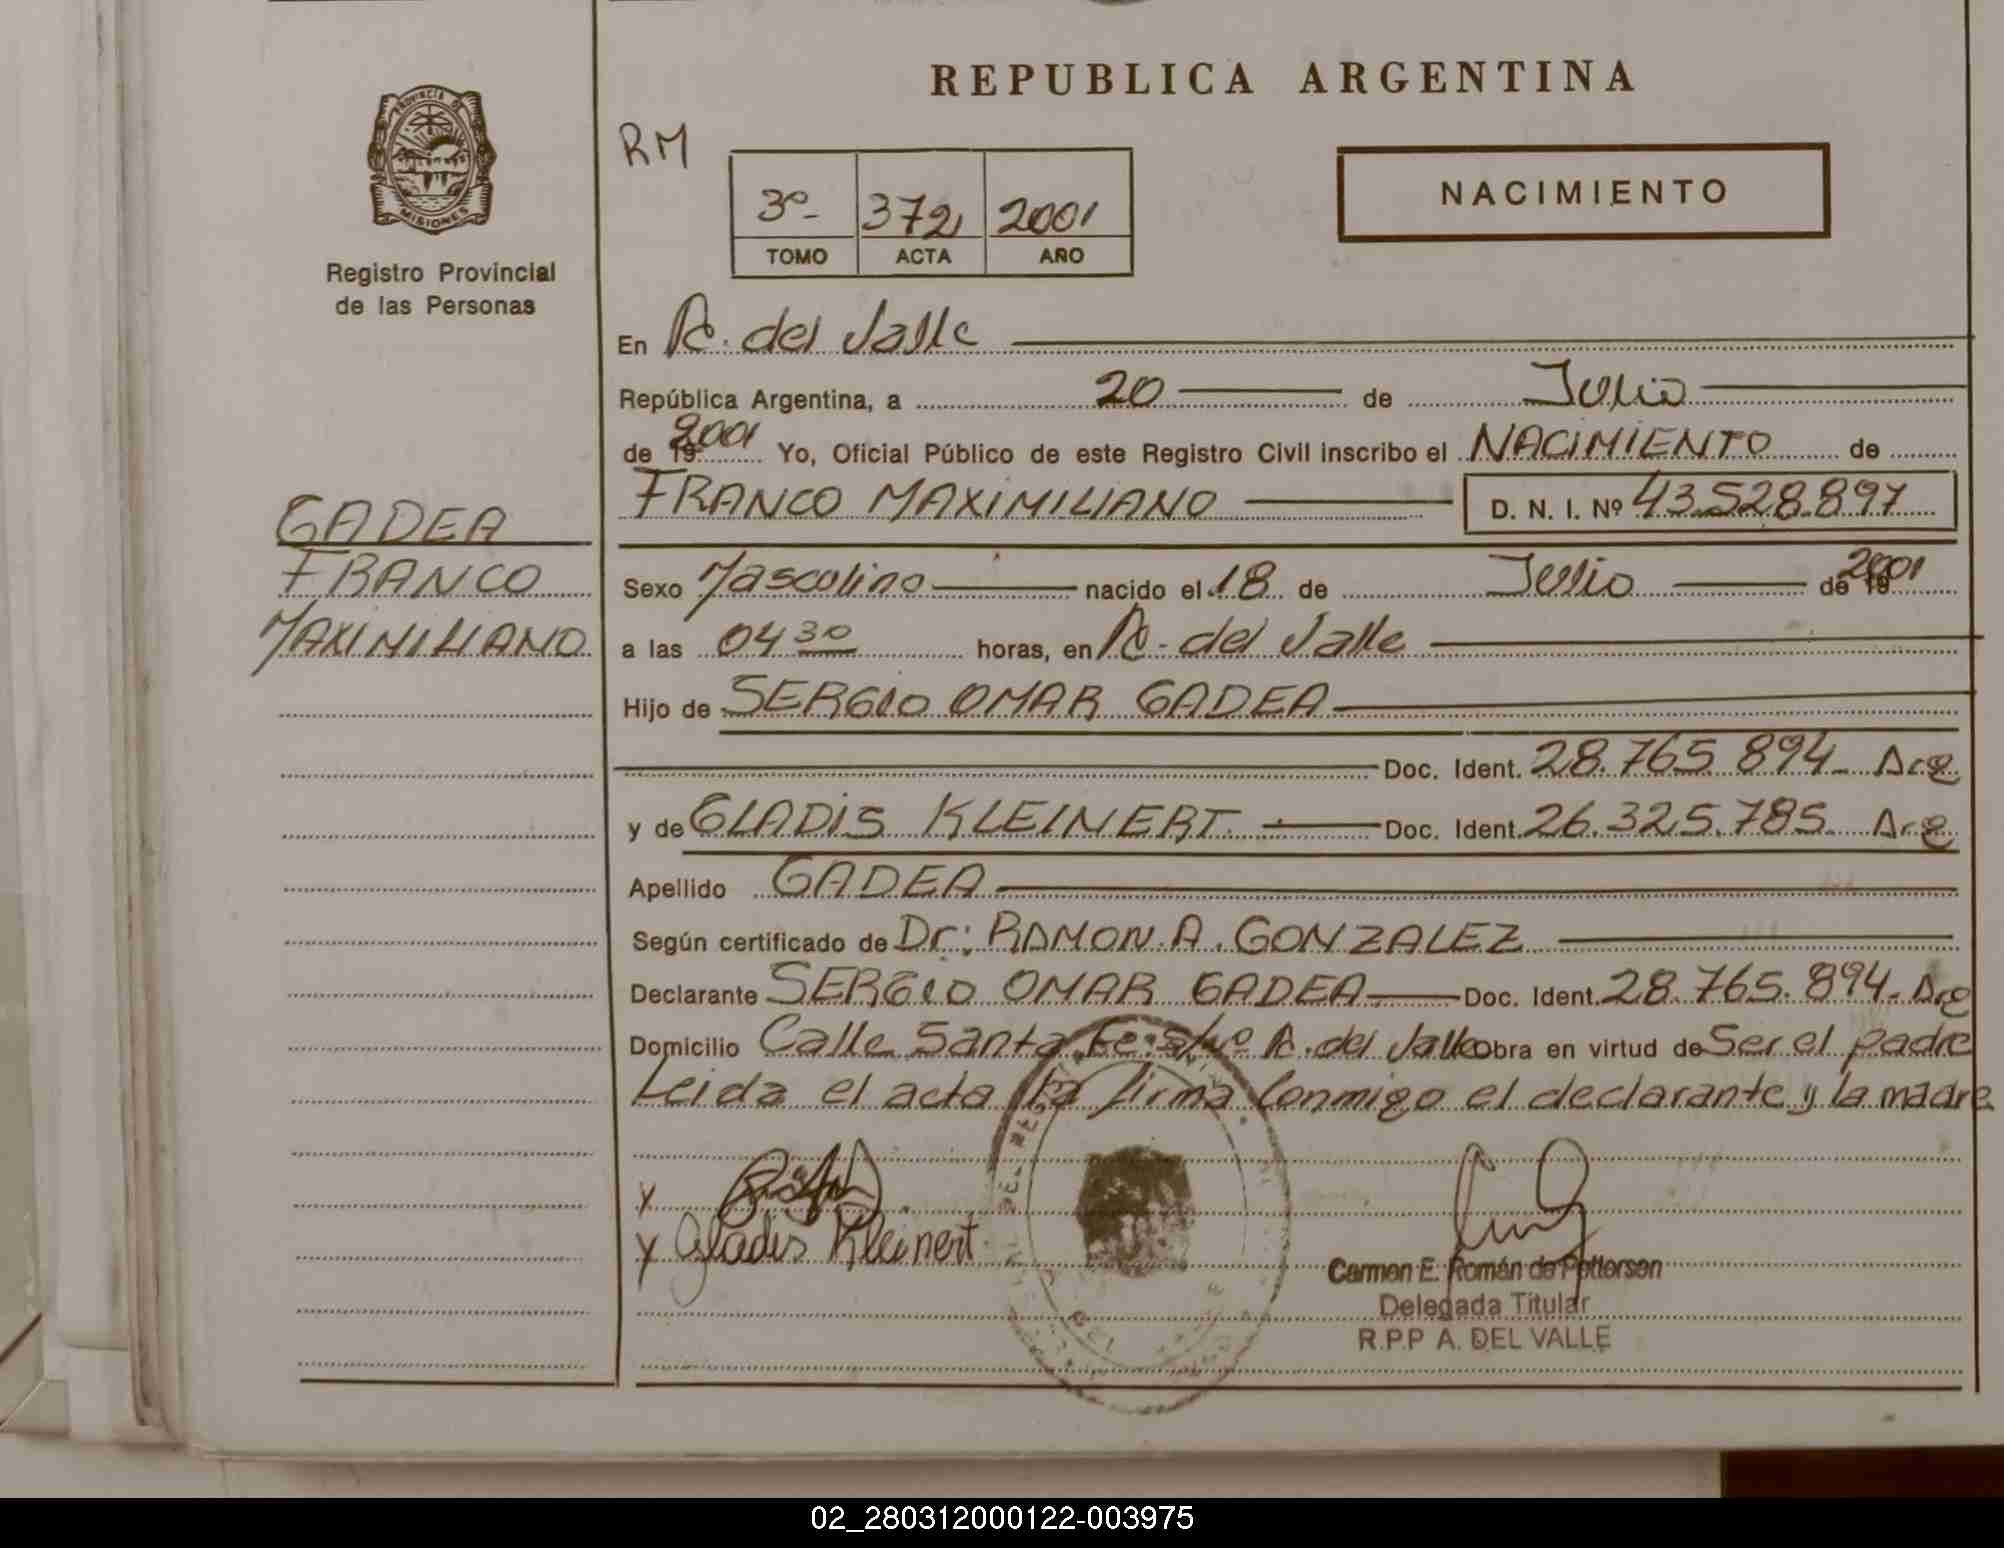 REPUBLICA ARGENTINA
PROVINCIA DE
MISIONES
Registro Provincial
de las Personas
RM
3º 372 2001
TOMO ACTA AÑO
NACIMIENTO
En A. del Valle
República Argentina, a 20 de Julio
de 19 2001 Yo, Oficial Público de este Registro Civil inscribo el NACIMIENTO de
FRANCO MAXIMILIANO D. N. I. Nº 43.528.897
GADEA
FRANCO
MAXIMILIANO
Sexo Masculino nacido el 18 de Julio de 19 2001
a las 04 30 horas, en A. del Valle
Hijo de SERGIO OMAR GADEA
Doc. Ident. 28.765.894 Arg
y de GLADIS KLEINERT Doc. Ident. 26.325.785 Arg
Apellido GADEA
Según certificado de Dr: RAMON A. GONZALEZ
Declarante SERGIO OMAR GADEA Doc. Ident. 28.765.894 Arg
Domicilio Calle Santa Fe s/nº A. del Valle obra en virtud de Ser el padre
Leida el acta la firma Conmigo el declarante y la madre
Gladis Kleinert
Carmen E. Román de Pettersen
Delegada Titular
R.P.P A. DEL VALLE
02_280312000122-003975